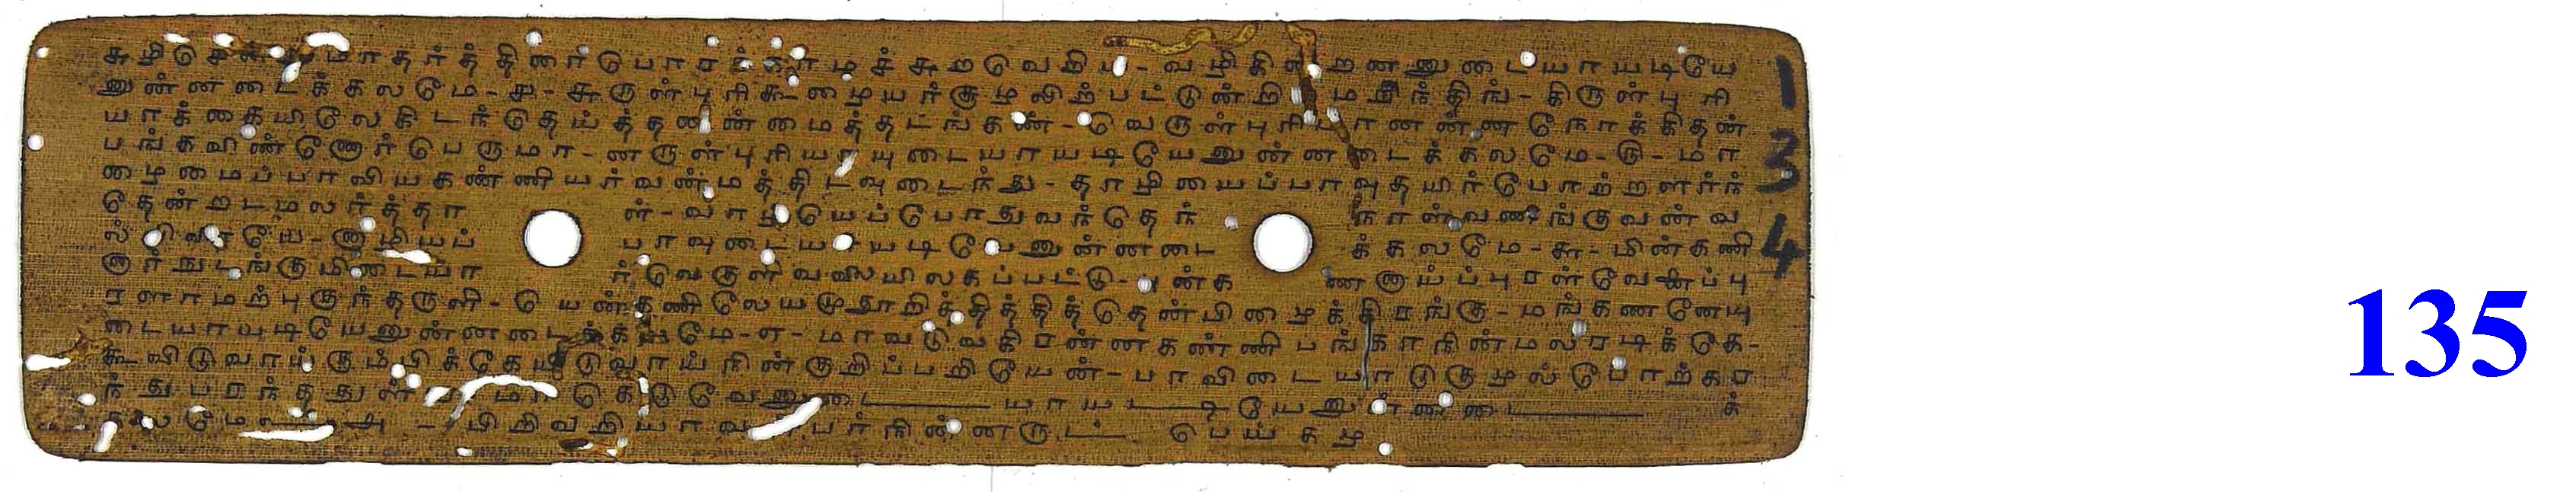 சுழிசென்று மாதர்த்திரைபொரக்காமச்சுறவெறிய-வழிகின்றனனுடையாயடியே 1
னுன்னடைக்கலமே-ச-சுருள்புரிகூழையர்சூழலிற்பட்டுன்றிறமறந்திங்-கிருள்புரி
யாக்கையிலேகிடந்தெய்த்தனன்மைத்தடங்கண்-வெருள்புரிமானன்னநோக்கிதன்
பங்கவிண்ணோர்பெருமா-னருள்புரியாயுடையாயடியேனுன்னடைக்கலமே-ரு-மா 3
ழைமைப்பாவியகண்ணியர்வன்மத்திடவுடைந்து-தாழியைப்பாவுதயிர்போற்றளர்ந்
தேன்றடமலர்த்தா ள்-வாழியெப்போதுவந்தெந் நாள்வணங்குவன்வ
ல்வினையே-னாழியப் பாவுடையாயடியேனுன்னடை க்கலமே-சு-மின்கணி 4
னார்நுடங்குமிடையா ர்வெகுளிவலையிலகப்பட்டு-புன்க ணனாய்ப்புரள்வேனைப்பு
ரளாமற்புகுந்தருளி-யென்கணிலேயமுதூறித்தித்தித்தென்பிழைக்கிரங்கு-மங்கணனேயு
டையாயடியேனுன்னடைக்கலமே-எ-மாவடுவகிரன்னகண்ணிபங்காநின்மலரடிக்கே-
கூவிடுவாய்கும்பிக்கேயிடுவாய்நின்குறிப்பறியேன்-பாவிடையாடுகுழல்போற்கர
ந்துபரந்ததுள்ள மாகெடுவேனுடையாயடியேனுன்னடைக்
கலமே அ - பிறிவறியாவன்பர்நின்னருட் பெய்கழ
135